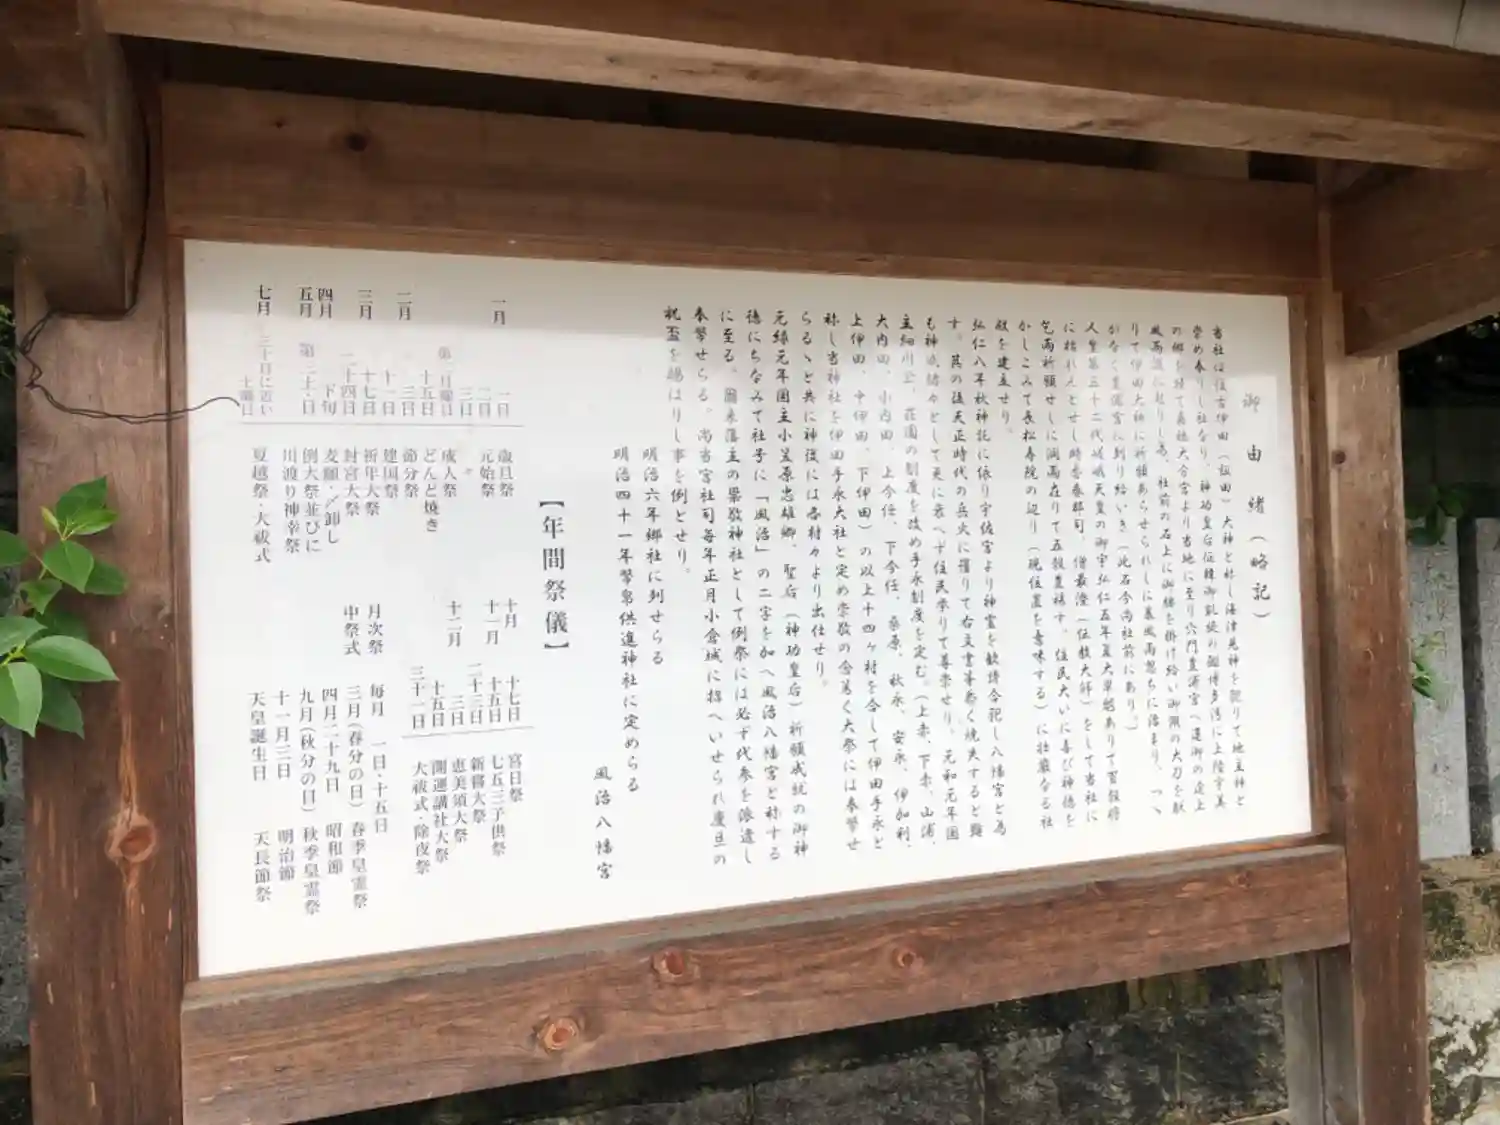 御由緒(略記)
当社は往古伊田(誼田)大神と称し海津見神を祀りて地主神と
崇め奉りし社なり、神功皇后征韓御凱旋の砌博多湾に上陸宇美
の郷を経て嘉穂大分宮より当地に至り穴門豊浦宮へ還御の途上
風雨
りて伊田大神に祈願あらせられしに暴風雨忽ちに治まり、つゝ
がなく豊浦宮に到り給いき(此石今尚社前にあり)
人皇第五十二代嵯峨天皇の御宇弘仁五年夏大旱魃ありて
に枯れんとせし時香春郡司、僧最澄(伝教大師)をして当社に
乞雨祈願せしに洞雨在りて五穀豊穣す。住民大いに喜び神徳を
かしこみて長松寿院の辺り(現位置を意味する)に壮厳なる社
殿を建立せり。
弘仁八年秋神託に依り宇佐宮より神霊を歓請合祀し八幡宮と為
す。其の後天正時代の兵火に罹りて古文書等悉く焼失すると雖
も神威赫々として更に衰へず住民挙りて尊崇せり。元和元年国
主細川公、荘園の制度を改め手永制度を定む。(上赤、下赤、山浦、
大内田、小内田、上今任、下今任、桑原、秋永、安永、伊加利、
上伊田、中伊田、下伊田)の以上十四ヶ村を合して伊田手永と
称し当神社を伊田手永大社と定め崇敬の念篤く大祭には奉幣せ
らるゝと共に神後には各村々より出仕せり。
元緑元年国主小笠原忠雄卿、聖后(神功皇后)祈願成就の御神
徳にちなみて社号に「風治」の二字を加へ風治八幡宮と称する
に至る。爾来藩主の畢敬神社として例祭には必ず代参を派遣し
奉幣せらる。尚当宮社司毎年正月小倉城に招へいせられ慶旦の
祝盃を賜はりし事を例とせり。
明治六年郷社に列せらる
明治四十一年幣帛供進神社に定めらる
風治八幡宮
【年間祭儀】
一月 一日 歳旦祭
二日 元始祭
三日 〃
第二月曜日 成人祭
十五日 どんど焼き
二月 三日 節分祭
十一日 建国祭
三月 十七日 祈年大祭
二十四日 封宮大祭
四月 下旬 麦願・〆卸し
五月 第三土・日 例大祭並びに
川渡り神幸祭
七月 三十日に近い
土曜日 夏越祭・大祓式
十月 十七日 宮日祭
十一月 十五日 七五三子供祭
二十三日 新嘗大祭
十二月 三日 恵美須大祭
十五日 開運講社大祭
三十一日 大祓式・除夜祭
月次祭 毎月 一日・十五日
中祭式 三月(春分の日) 春季皇霊祭
四月二十九日 昭和節
九月(秋分の日) 秋季皇霊祭
十一月三日 明治節
天皇誕生日 天長節祭